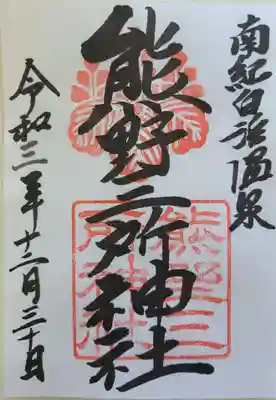 南紀白浜温泉
熊野三所神社
令和三年十二月三十日
熊野三
所神社